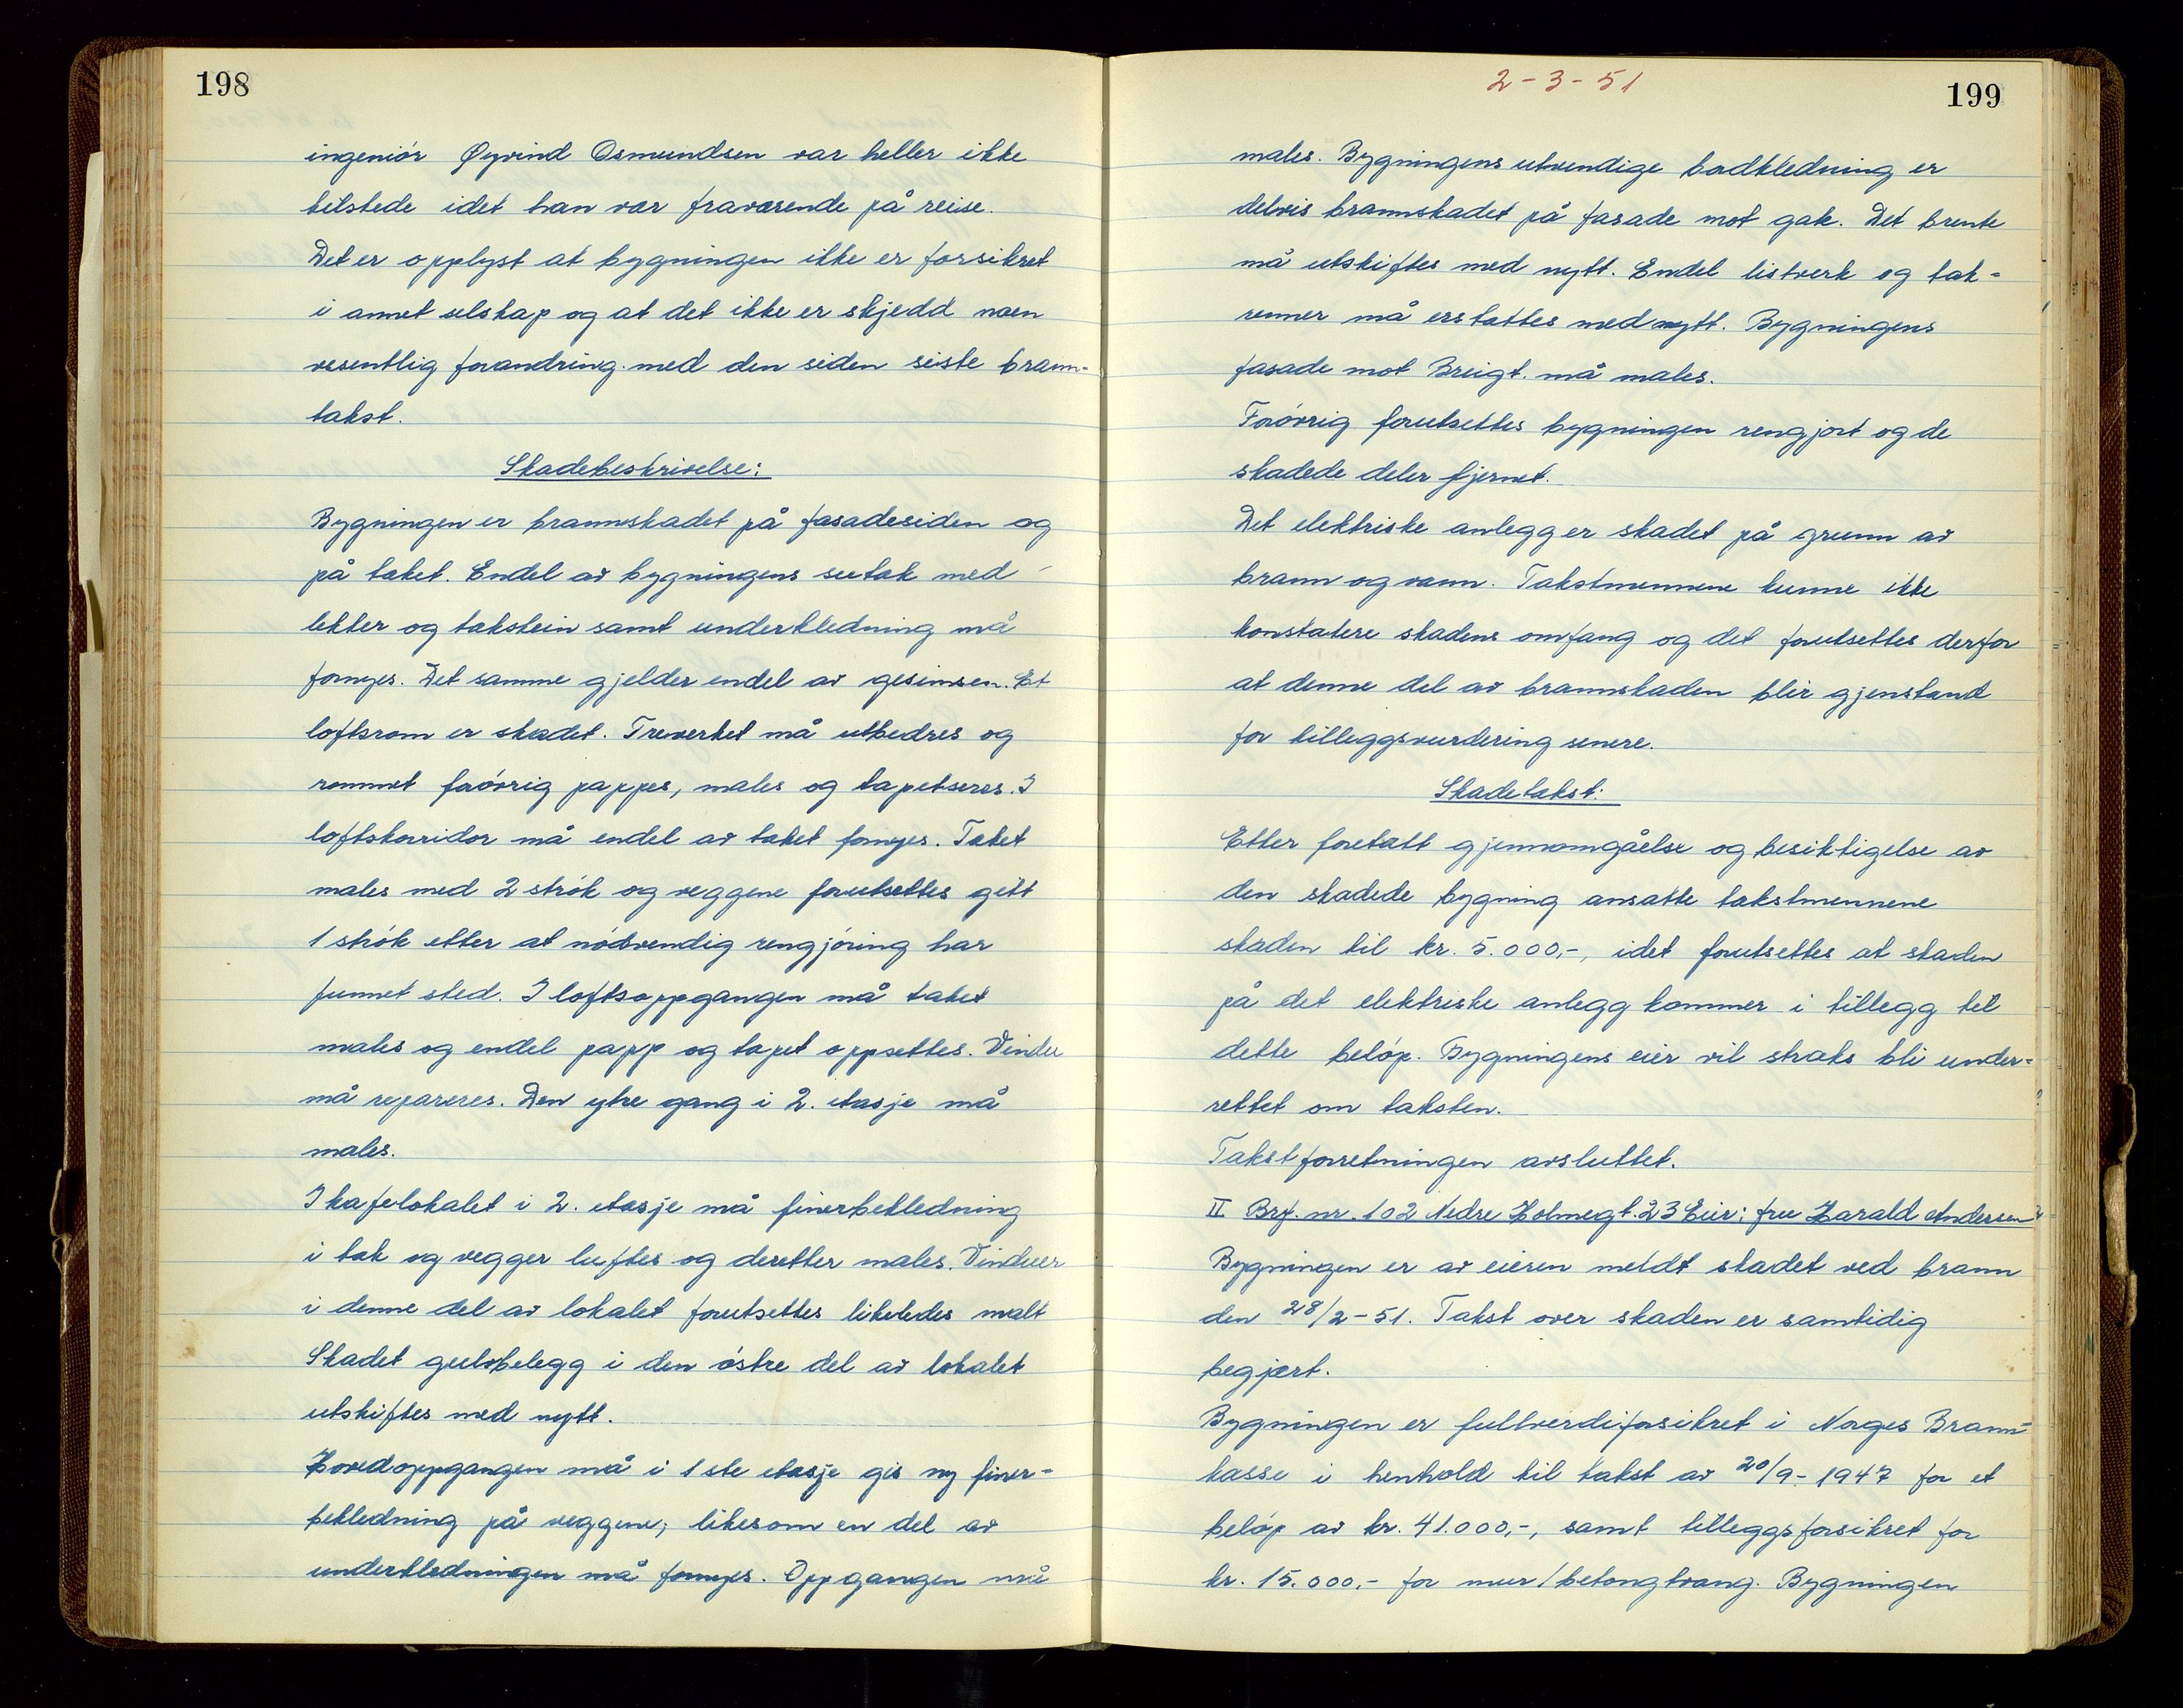 198
ingeniór Øyvind Osmundsen var heller ikke
tilstede idet han var fraværende på reise.
Det er opplyst at bygningen ikke er forsikret
i annet selskap og at det ikke er skjedd noen
vesentlig forandring med den siden siste brann-
takst.
Skadebeskrivelse:
Bygningen er brannskadet på fasadesiden og
på taket. Endel av bygningens sutak med
lekter og takstein samt underkledning må
fornyes. Det samme gjelder endel av gesimsen. Et
loftsrom er skadet. Treverket må utbedres og
rommet forövrig pappes, males og tapetseres. I
loftskorridor må endel av taket fornyes. Taket
males med 2 strök og veggene forutsettes gitt
1 strók etter at nódvendig rengjóring har
funnet sted. I loftsoppgangen må taket
males og endel papp og tapet oppsettes. Vindu
må repareres. Den ytre gang i 2. etasje må
males.
I kafelokalet i 2. etasje må finerbekledning
i tak og vegger luftes og deretter males. Vinduer
i denne del av lokalet forutsettes likeledes malt
Skadet gulvbelegg i den óstre del av lokalet
utskiftes med nytt.
Hovedoppgangen må i 1 ste etasje gis ny finer-
bekledning på veggene, likesom en del av
underkledningen må fornyes. Oppgangen må
2-3-51
199
males. Bygningens utvendige bordkledning er
delvis brannskadet på fasade mot gate. Det brente
må utskiftes med nytt. Endel listverk og tak-
renner må erstattes med nytt. Bygningens
fasade mot Breigt. må males.
Forövrig forutsettes bygningen rengjort og de
skadede deler fjernet.
Det elektriske anlegg er skadet på grunn av
brann og vann. Takstmennene kunne ikke
konstatere skadens omfang og det forutsettes derfor
at denne del av brannskaden blir gjenstand
for tilleggsvurdering senere.
Skadetakst:
Etter foretatt gjennomgåelse og besiktigelse av
den skadede bygning ansatte takstmennene
skaden til kr. 5.000,-, idet forutsettes at skaden
på det elektriske anlegg kommer i tillegg til
dette belóp. Bygningens eier vil straks bli under-
rettet om taksten.
Takstforretningen avsluttet.
II Brf. nr. 102 Nedre Holmegt. 23 Eier: fru Harald Andersen
Bygningen er av eieren meldt skadet ved brann
den 28/2-51. Takst over skaden er samtidig
begjært.
Bygningen er fullverdiforsikret i Norges Brann-
kasse i henhold til takst av 20/9-1947 for et
belóp av kr. 41.000,-, samt tilleggsforsikret for
kr. 15.000.- for mur/betongtvang. Bygningen